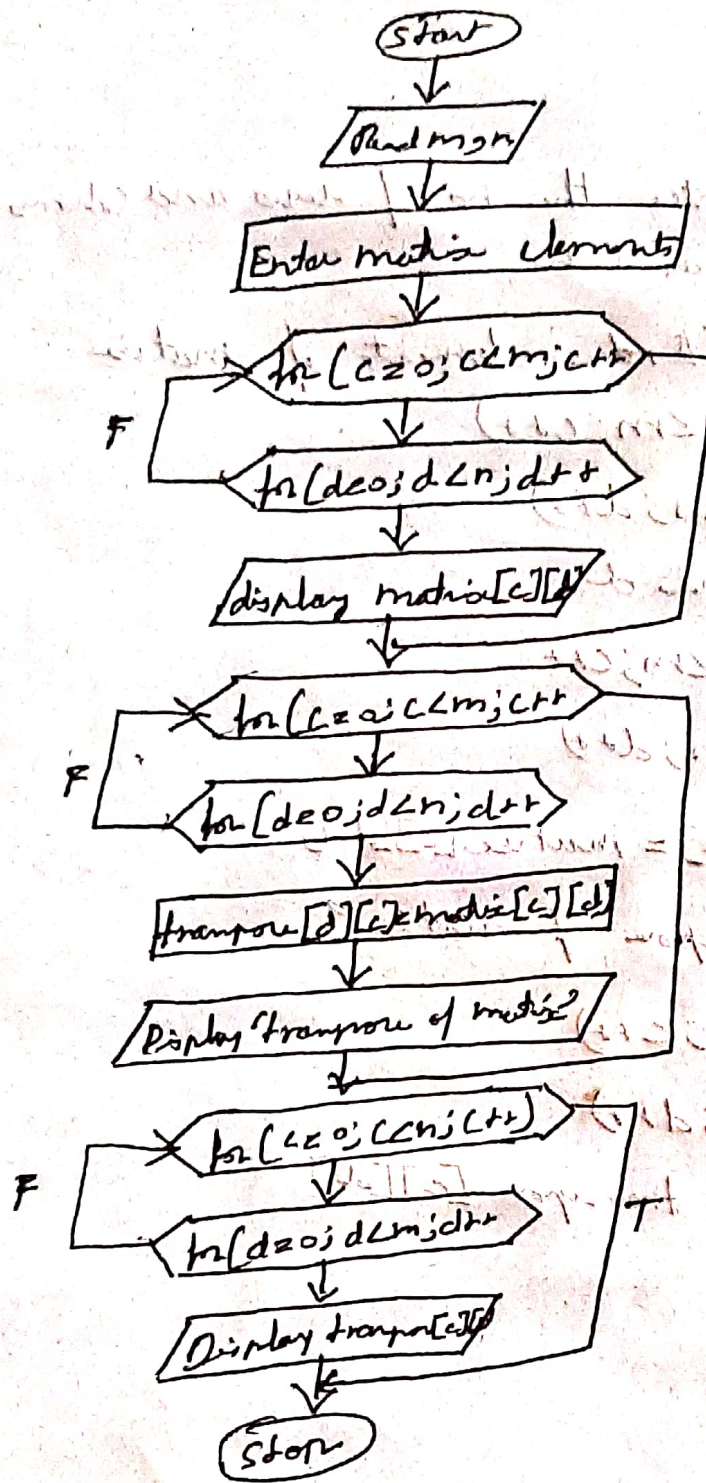 Start
Read m,n
Enter matrix elements
for (c=0; c<m; c++
F
for (d=0; d<n; d++
display matrix[c][d]
for (c=0; c<m; c++
F
for (d=0; d<n; d++
transpose[d][c]=matrix[c][d]
Display "transpose of matrix"
for (c=0; c<n; c++)
F
for (d=0; d<m; d++
T
Display transpos[c][d]
Stop